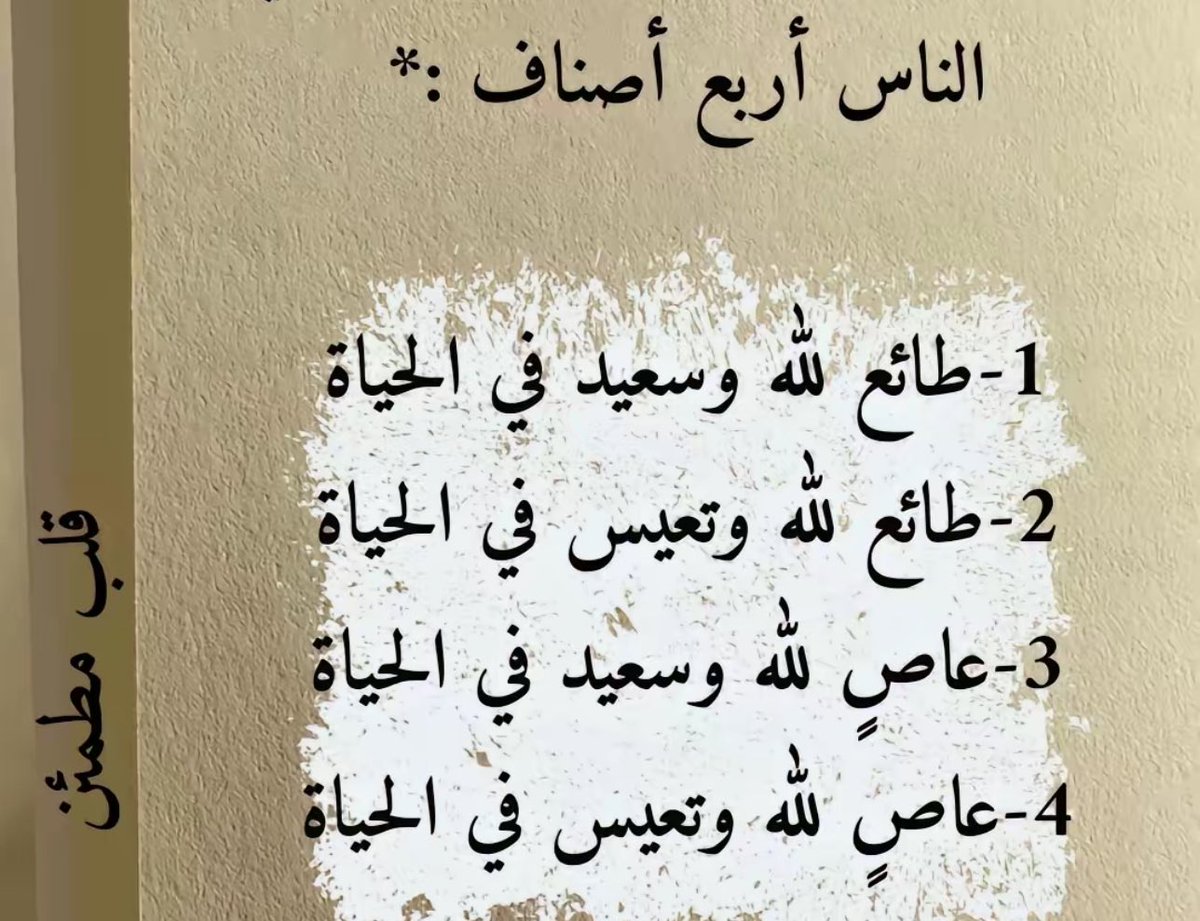 الناس أربع أصناف :*
1-طائع لله وسعيد في الحياة
2-طائع لله وتعيس في الحياة
3-عاصٍ لله وسعيد في الحياة
4-عاصٍ لله وتعيس في الحياة
قلب مطمئن